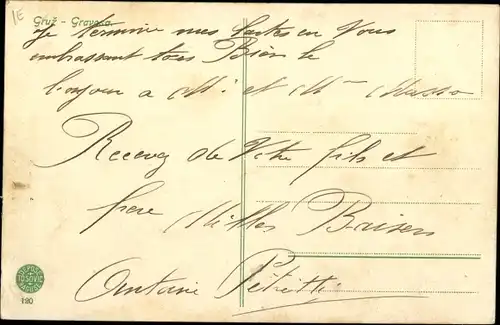 1E
Gruž - Gravosa
Je termine mes Cartes en Vous
embrassant tous Bien le
bonjour a Mr et Mme Musso
Recevez de Votre fils et
frere Milles Baisers
Antoine
TOSOVIC
190